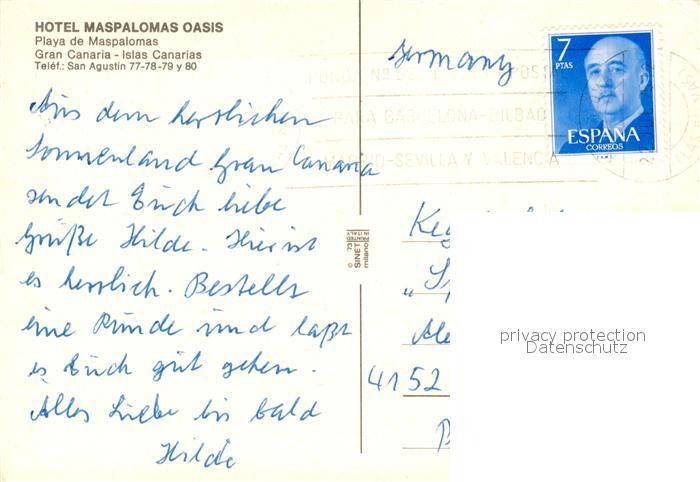 HOTEL MASPALOMAS OASIS
Playa de Maspalomas
Gran Canaria - Islas Canarias
Teléf.: San Agustin 77-78-79 y 80
Germany
7
PTAS
ESPAÑA
CORREOS
PARA BARCELONA-BILBAO
-SEVILLA Y VALENCIA
Aus dem herrlichen
Sonnenland Gran Canaria
sendet Euch liebe
Grüße Hilde. Hier ist
es herrlich. Bestells
eine Runde und laßt
es Euch gut gehen.
Alles Liebe bis bald
Hilde
© 73
SINET
milano
PRINTED
IN ITALY
4152
privacy protection
Datenschutz